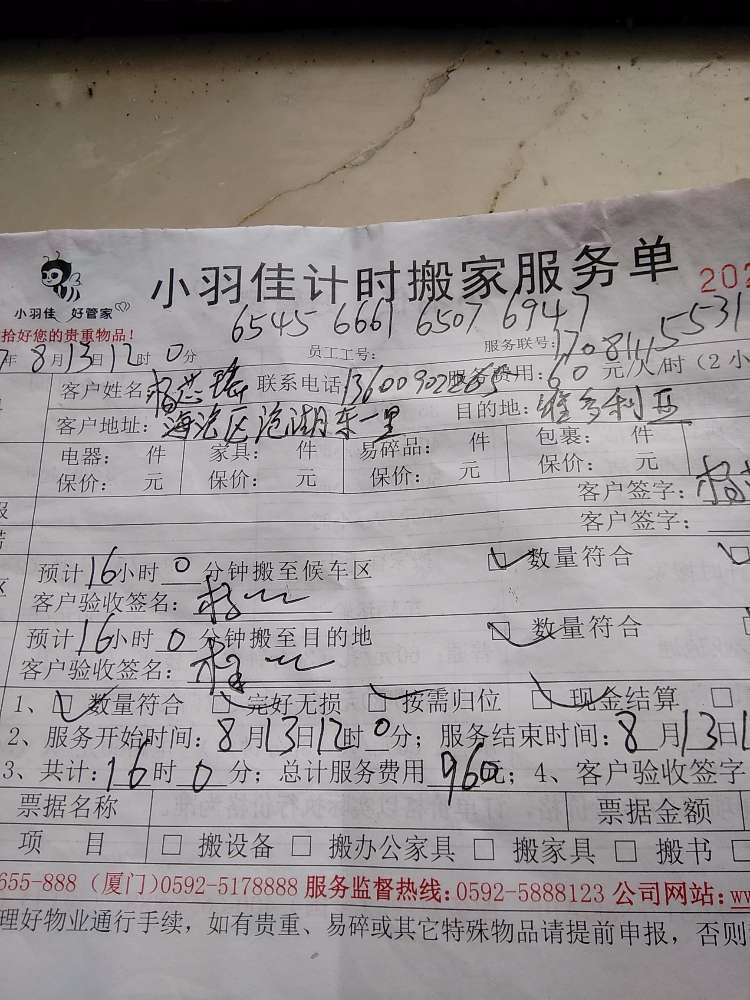 小羽佳计时搬家服务单
202
小羽佳 好管家
拾好您的贵重物品！
6545 6661 6507 6947
年8月13日12时0分 员工工号： 服务联号：
客户姓名： 联系电话： 服务费用：60元/人/时（2小
客户地址：海沧区沧湖东一里 目的地：维多利亚
电器： 件 家具： 件 易碎品： 件 包裹： 件
保价： 元 保价： 元 保价： 元 保价： 元
客户签字：
客户签字：
预计16小时0分钟搬至候车区 数量符合
客户验收签名：
预计16小时0分钟搬至目的地 数量符合
客户验收签名：
1、数量符合 完好无损 按需归位 现金结算
2、服务开始时间：8月13日12时0分；服务结束时间：8月13日1
3、共计：16时0分；总计服务费用960元；4、客户验收签字
票据名称 票据金额
项 目 □ 搬设备 □ 搬办公家具 □ 搬家具 □ 搬书 □
655-888（厦门）0592-5178888 服务监督热线：0592-5888123 公司网站：ww
理好物业通行手续，如有贵重、易碎或其它特殊物品请提前申报，否则